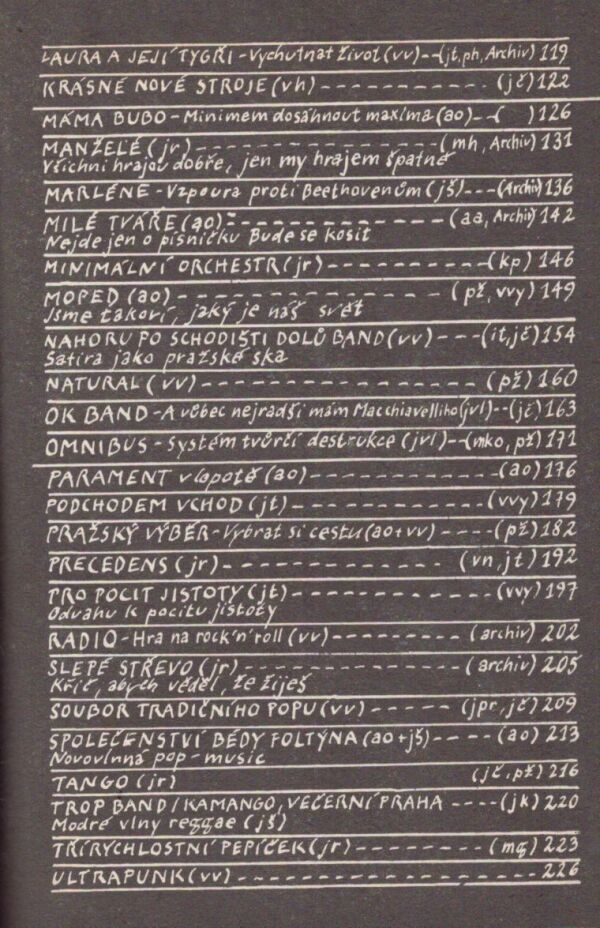 LAURA A JEJÍ TYGŘI - Vychutnat život (vv) -- (jt, ph, Archiv) 119
KRÁSNÉ NOVÉ STROJE (vh) ----------- (jč) 122
MÁMA BUBO - Minimem dosáhnout maxima (ao) -- ( ) 126
MANŽELÉ (jr) --------------- (mh, Archiv) 131
Všichni hrajou dobře, jen my hrajem špatně
MARLÉNE - Vzpoura proti Beethovenům (jš) --- (Archiv) 136
MILÉ TVÁŘE (ao) ------------- (aa, Archiv) 142
Nejde jen o písničku Bude se kosit
MINIMÁLNÍ ORCHESTR (jr) ---------- (kp) 146
MOPED (ao) --------------- (pž, vvy) 149
Jsme takoví, jaký je náš svět
NAHORU PO SCHODIŠTI DOLŮ BAND (vv) --- (it, jč) 154
Satira jako pražské ska
NATURAL (vv) ----------------- (pž) 160
OK BAND - A vůbec nejradši mám Macchiavelliho (jvl) -- (jč) 163
OMNIBUS - Systém tvůrčí destrukce (jvl) -- (mko, pž) 171
PARAMENT v lopotě (ao) ------------ (ao) 176
PODCHODEM VCHOD (jt) ------------ (vvy) 179
PRAŽSKÝ VÝBĚR - Vybrat si cestu (ao+vv) ---- (pž) 182
PRECEDENS (jr) -------------- (vn, jt) 192
PRO POCIT JISTOTY (jt) ------------ (vvy) 197
Odvahu k pocitu jistoty
RADIO - Hra na rock'n'roll (vv) --------- (archiv) 202
SLEPÉ STŘEVO (jr) -------------- (archiv) 205
Křič, abych věděl, že žiješ
SOUBOR TRADIČNÍHO POPU (vv) ----- (jpr, jč) 209
SPOLEČENSTVÍ BÉDY FOLTÝNA (ao+jš) ---- (ao) 213
Novovlnná pop - music
TANGO (jr) (jč, pž) 216
TROP BAND / KAMANGO, VEČERNÍ PRAHA ---- (jk) 220
Modré vlny reggae (jš)
TŘÍRYCHLOSTNÍ PEPÍČEK (jr) --------- (mg) 223
ULTRAPUNK (vv) ------------------ 226